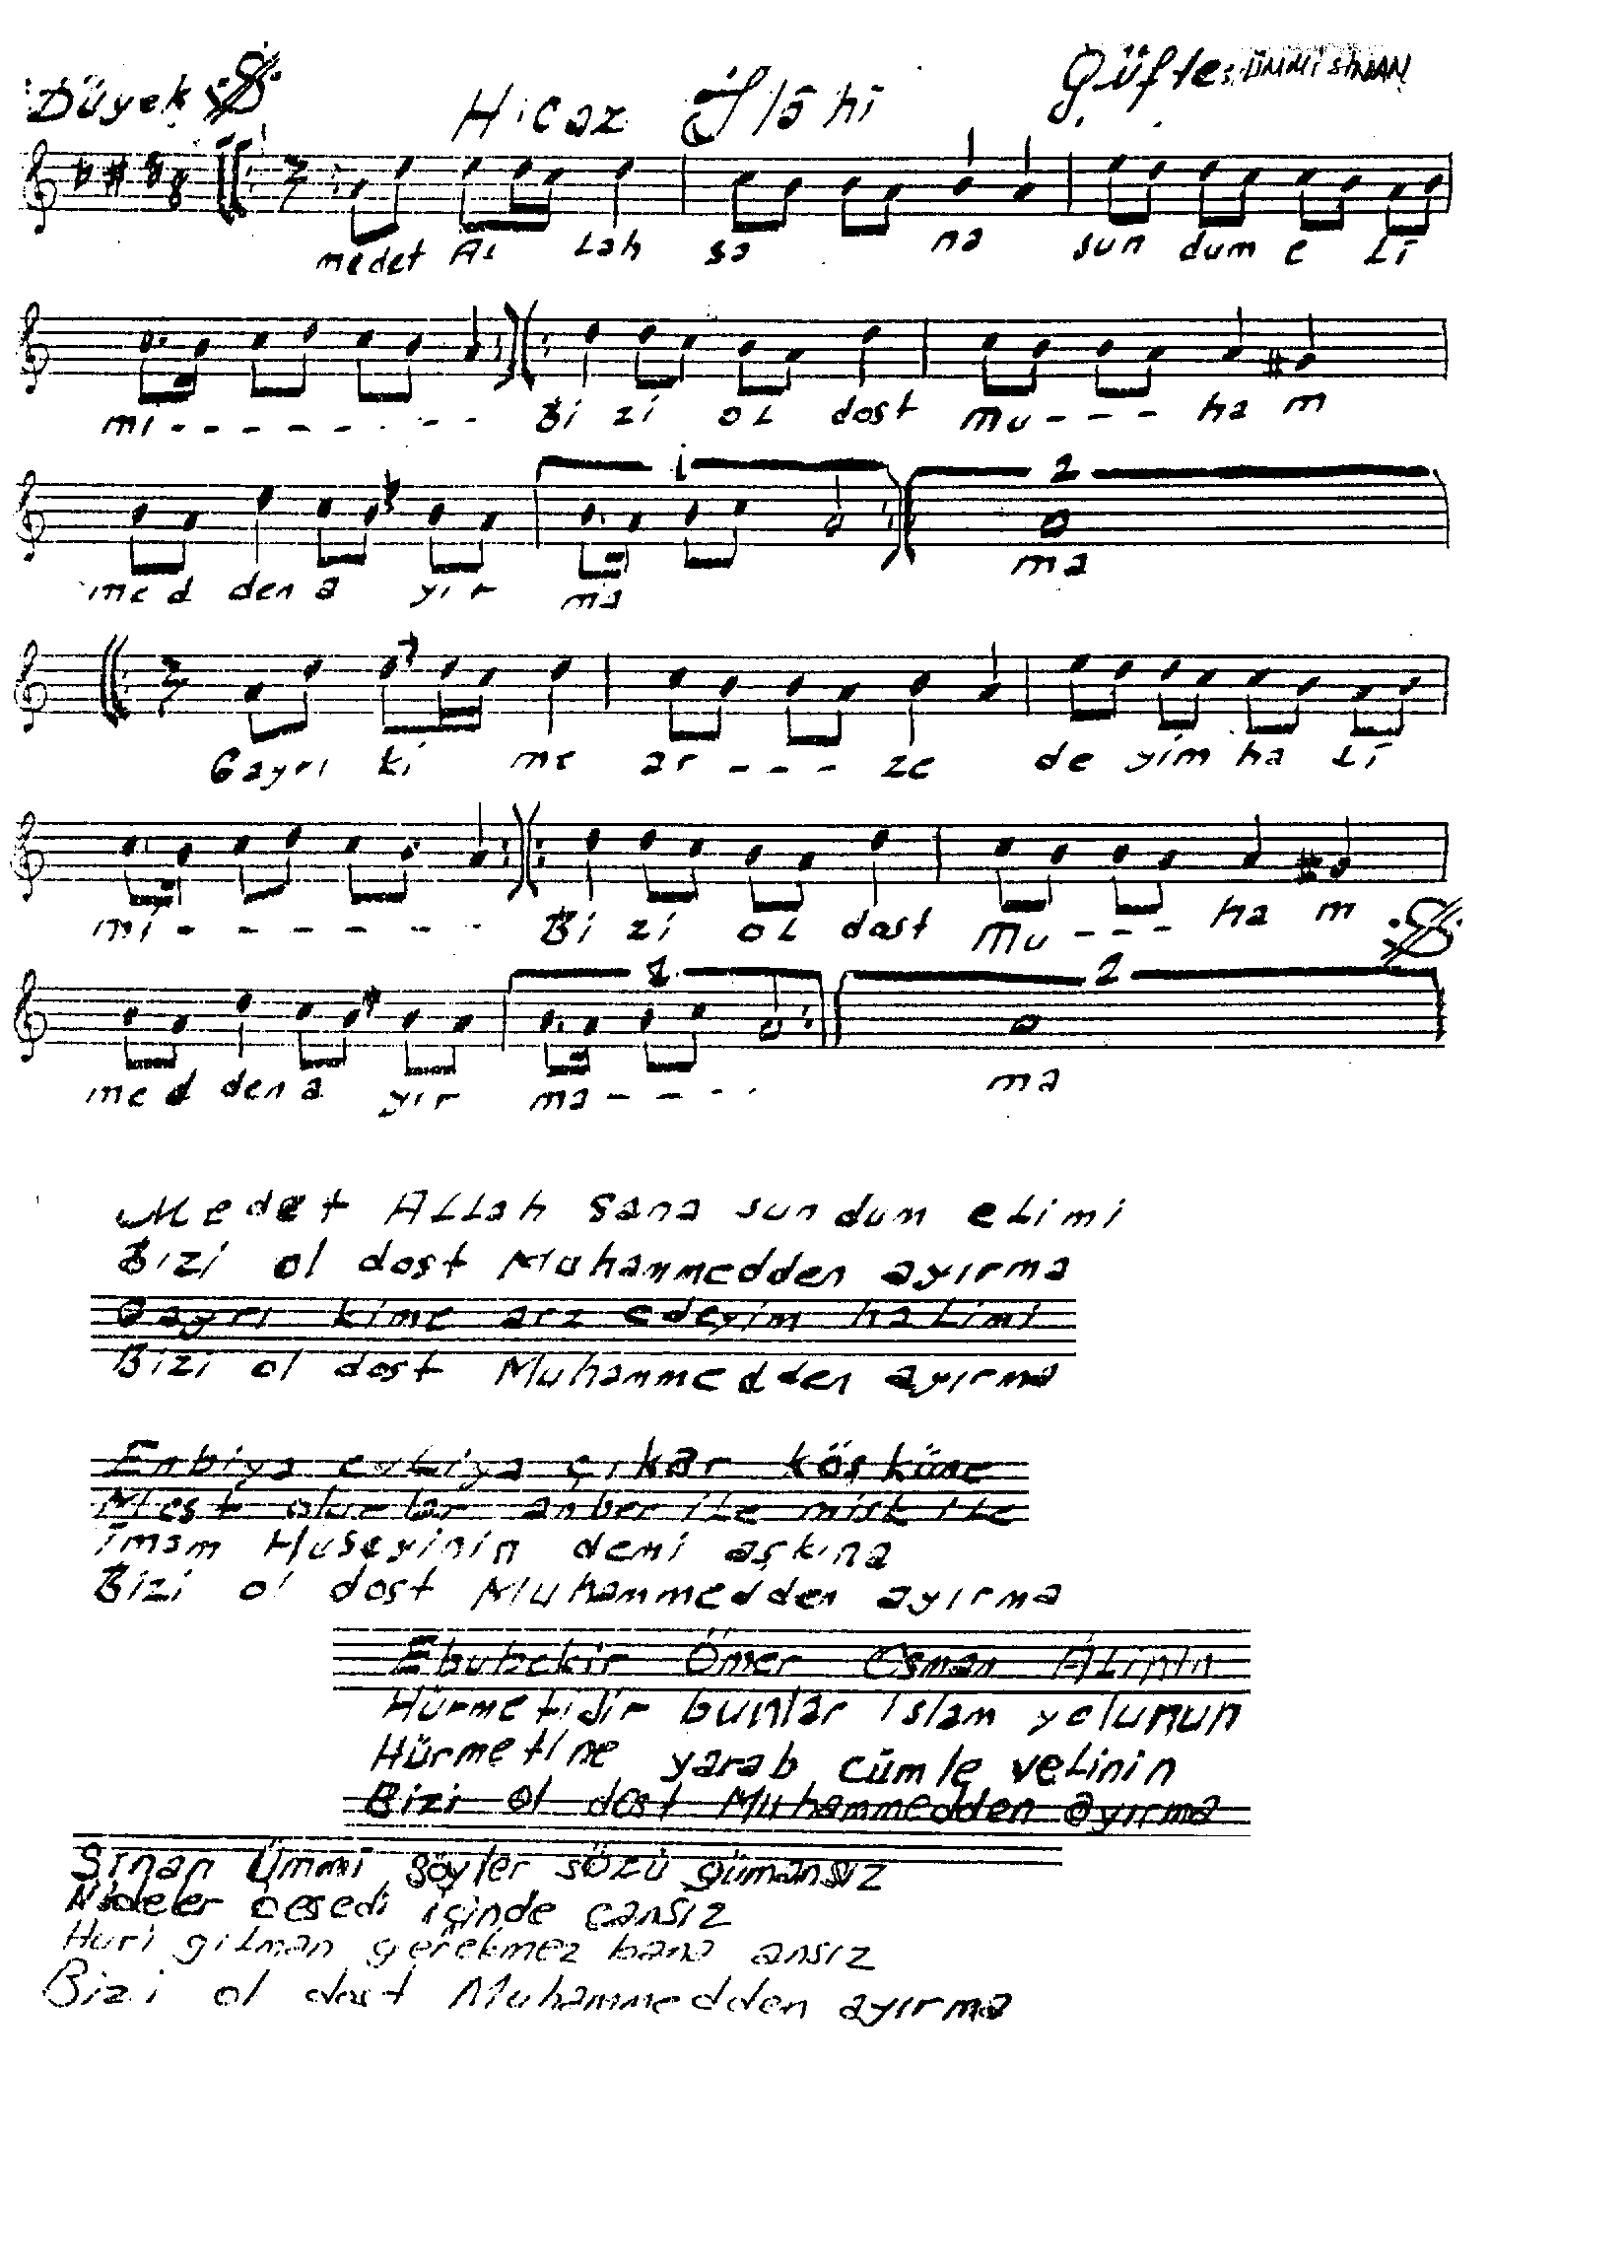 Düyek Hicaz İlâhi Güfte: ÜMMİ SİNAN
8 8
medet AL Lah sa na sun dum e Li
mi - - - - - - - Bi zi OL dost Mu - - - ha m
1 2
med den a yır ma ma
Gayrı ki me ar - - - ze de yim ha Li
mi - - - - - - - Bi zi OL dost Mu - - - ha m
1 2
med den a yır ma - - - - ma
Medet ALLah Sana sundum eLimi
Bizi ol dost Muhammedden ayırma
Gayrı kime arz edeyim haLimi
Bizi ol dost Muhammedden ayırma
Enbiya evLiya çıkar köşküne
Mest olurlar anber iLe misk iLe
İmam Huseyinin demi aşkına
Bizi ol dost Muhammedden ayırma
Ebubekir Ömer Osman ALinin
Hürmetidir bunlar islam yolunun
Hürmetine yarab cümle veLinin
Bizi ol dost Muhammedden ayırma
Sinan Ümmi söyler sözü gümansız
Nideler cesedi içinde cansız
Huri giLman gerekmez bana ansız
Bizi ol dost Muhammedden ayırma